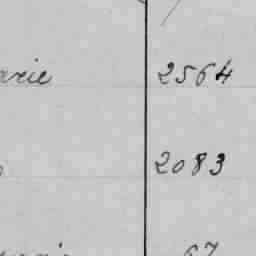 arie 2564
2083
67